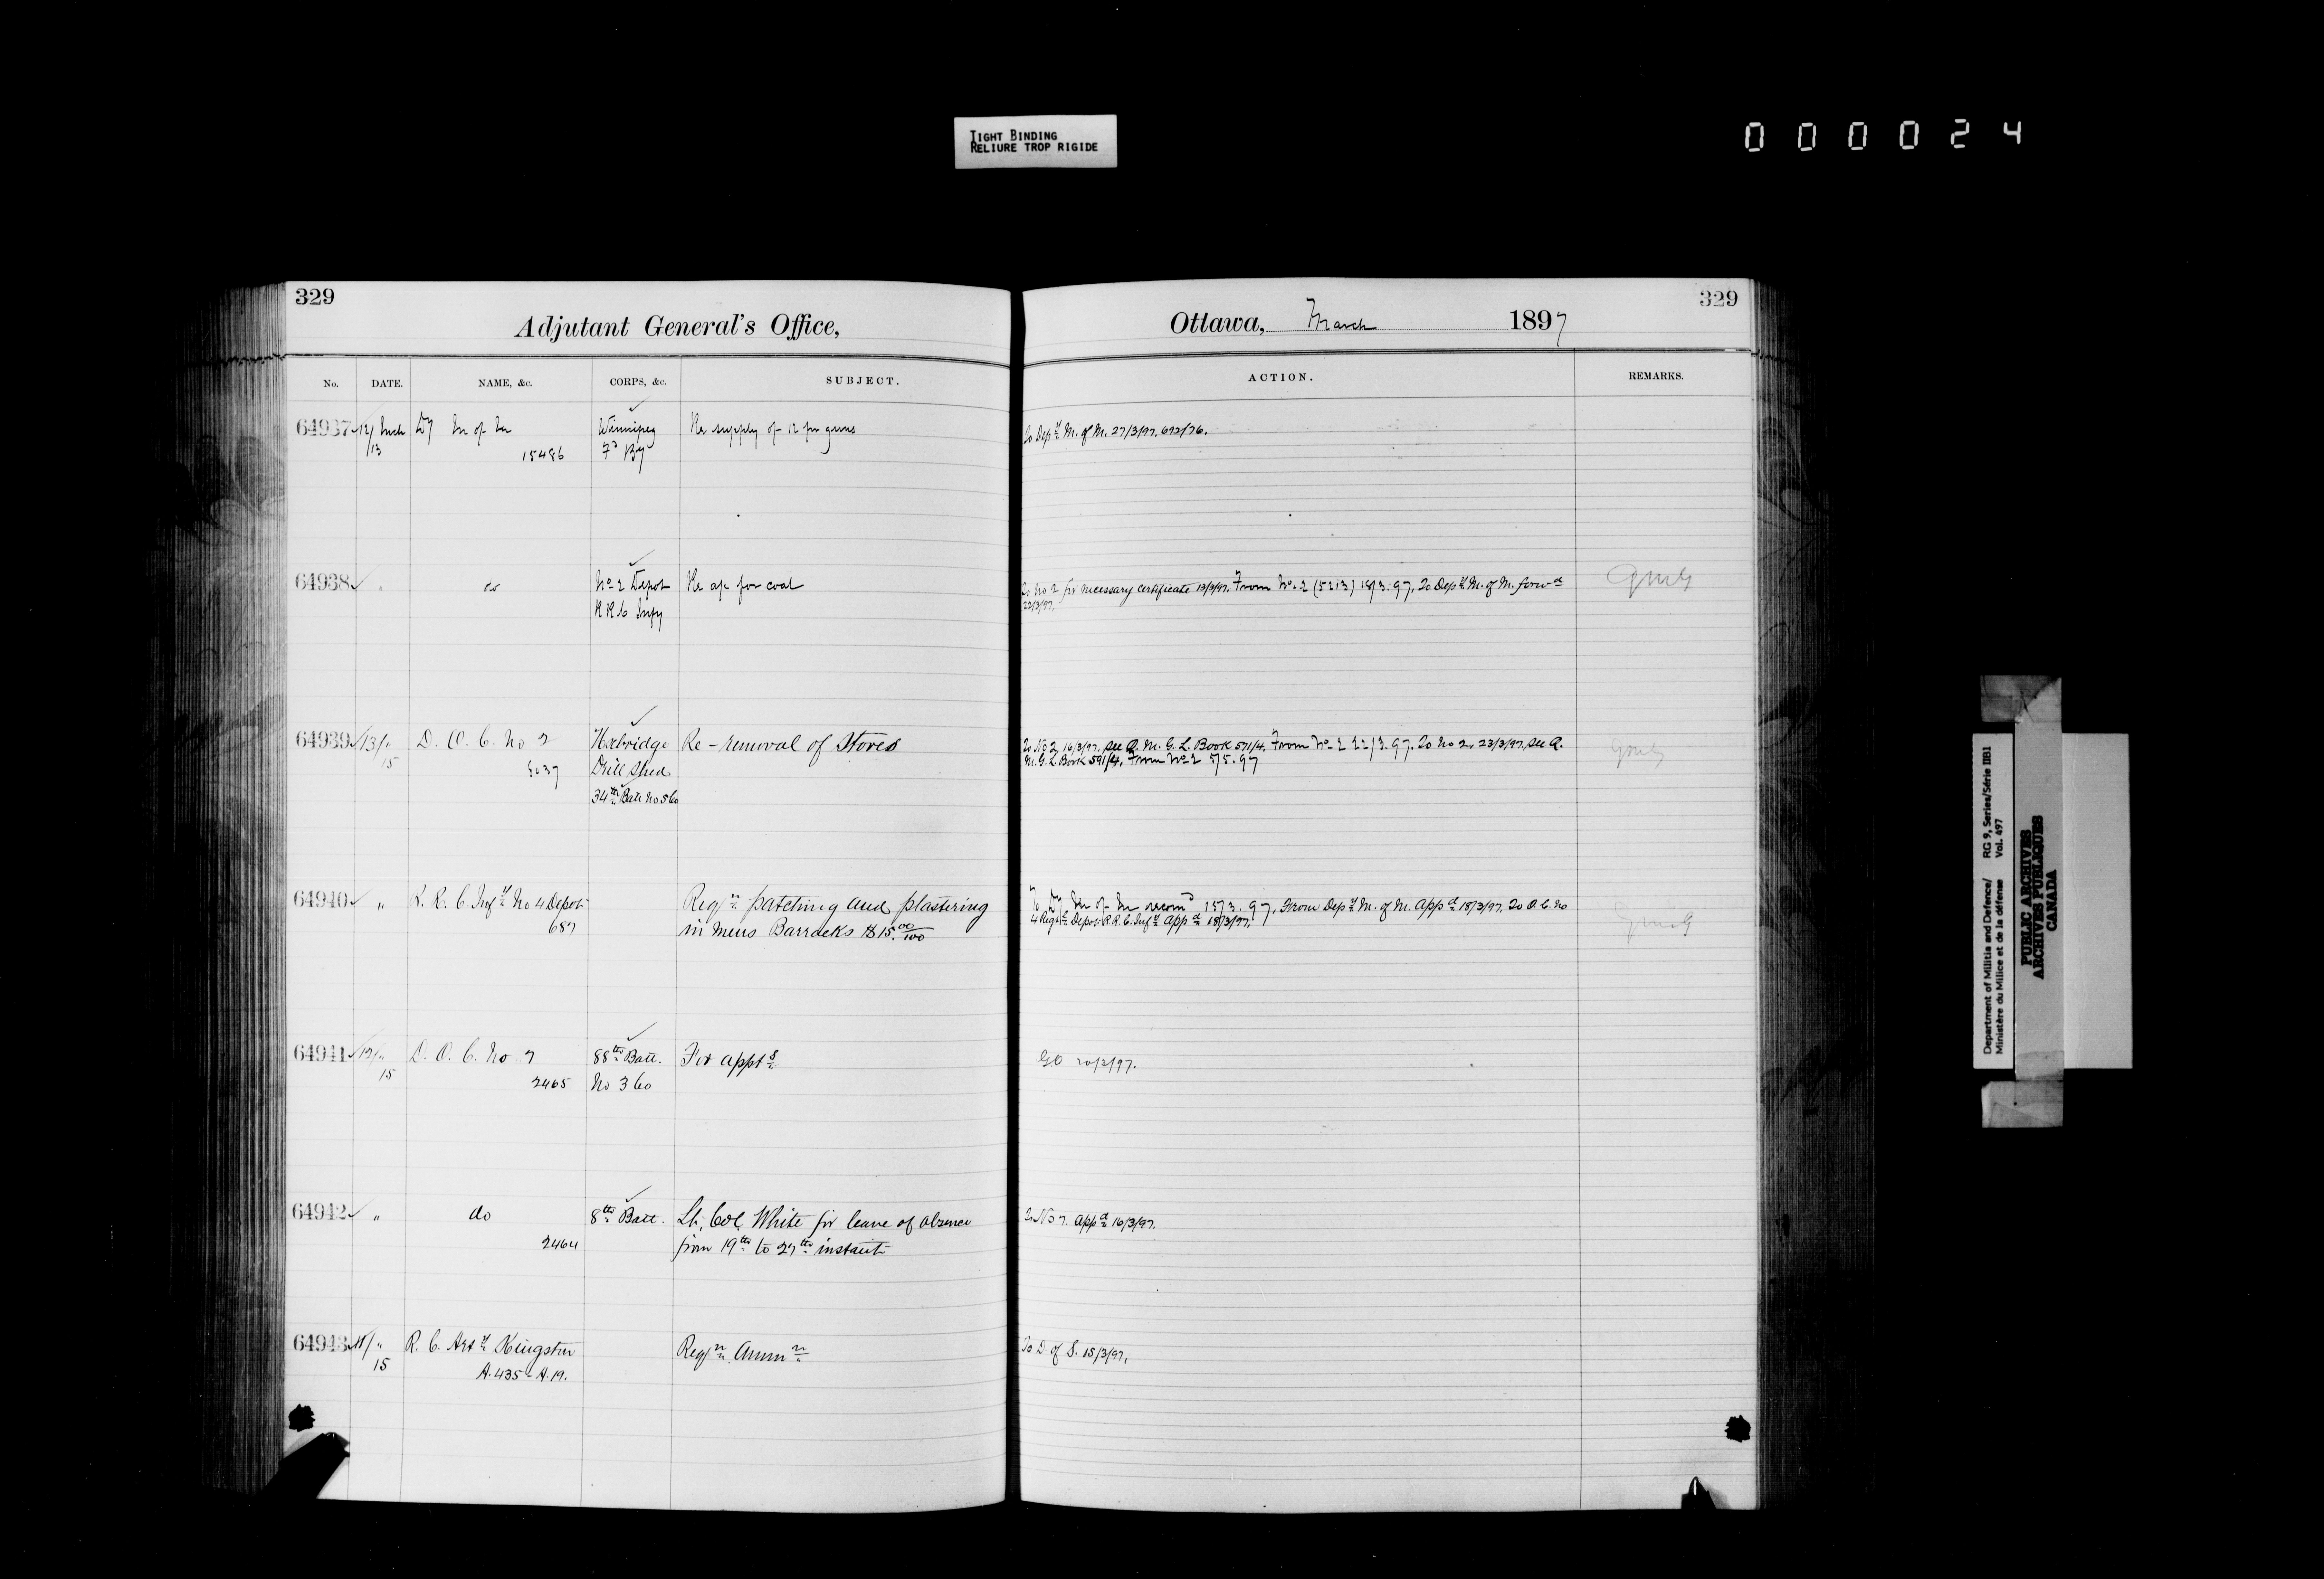 TIGHT BINDING
RELIURE TROP RIGIDE
000024
329
Adjutant General's Office,
No. DATE. NAME, &c. CORPS, &c. SUBJECT.
64937 12/ Mch Dy M of M Winnipeg Re supply of 12 pr guns
/13 15486 7d By
64938 " do No 2 Depot Re a/c for coal
R R C Infy
64939 13/" D. O. C. No 2 Uxbridge Re-removal of Stores
15 5037 Drill Shed
34th Batt No 5 Co
64940 " R. R. C. Infy No 4 Depot Reqn patching and plastering
687 in mens Barracks $15.00/100
64941 12/" D. O. C. No 7 88th Batt. For appts
15 2465 No 3 Co
64942 " do 8th Batt. Lt. Col. White for leave of absence
2464 from 19th to 27th instant
64943 11/" R. C. Arty Kingston Reqn Ammn
15 A. 435 - A. 19.
329
Ottawa, March 1897
ACTION. REMARKS.
To Depy M. of M. 27/3/97. 692/76.
To No 2 for necessary certificate 13/3/97. From No. 2 (5213) 18/3.97. To Depy M. of M. forwd
22/3/97.
To No 2, 16/3/97. see Q. M. G. L. Book 571/4. From No 2 22/3.97. To No 2, 23/3/97 see Q.
M. G. L. Book 591/4. From No 2 5/5.97
To Dy M of M recomd 15/3.97. From Depy M. of M. Appd 18/3/97. To O. C. No
4 Regtl Depot R. R. C. Infy Appd 18/3/97.
GO 20/3/97.
To No 7. Appd 16/3/97.
To D of S. 15/3/97.
Department of Militia and Defence/ RG 9, Series/Série IIB1
Ministère du Milice et de la défense Vol. 497
PUBLIC ARCHIVES
ARCHIVES PUBLIQUES
CANADA